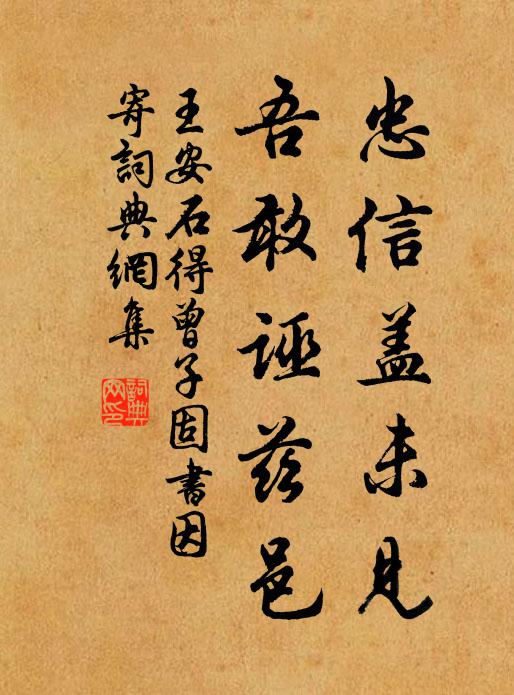 忠信盖未見
吾敢誣茲邑
王安石得曾子固書因
寄詞典網集
詞典網印